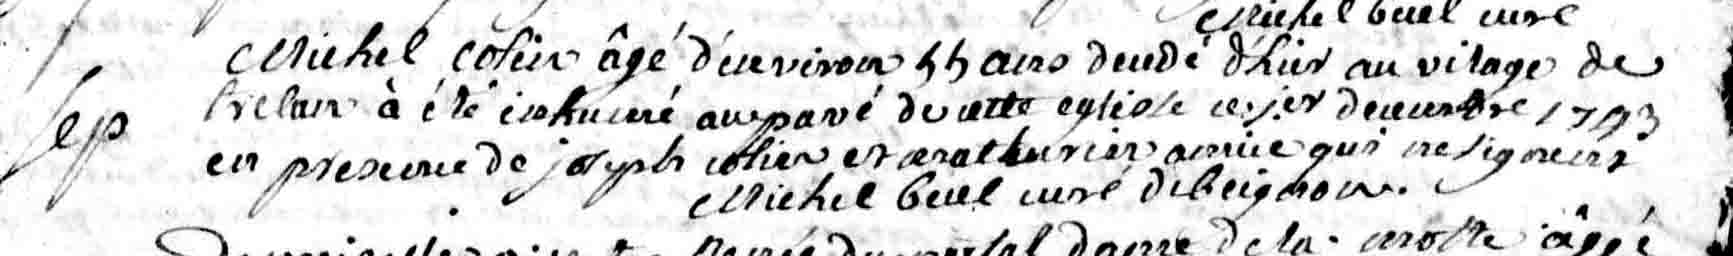 Michel buel curé
Michel colin âgé d'environ 55 ans decedé d'hier au vilage de
Sep trelan à été inhumé au pavé de cette eglise ce 1er decembre 1793
en presence de joseph colin et mathurin amice qui ne signent
Michel buel curé de beignon.
Renée du portal dame de la motte âgée